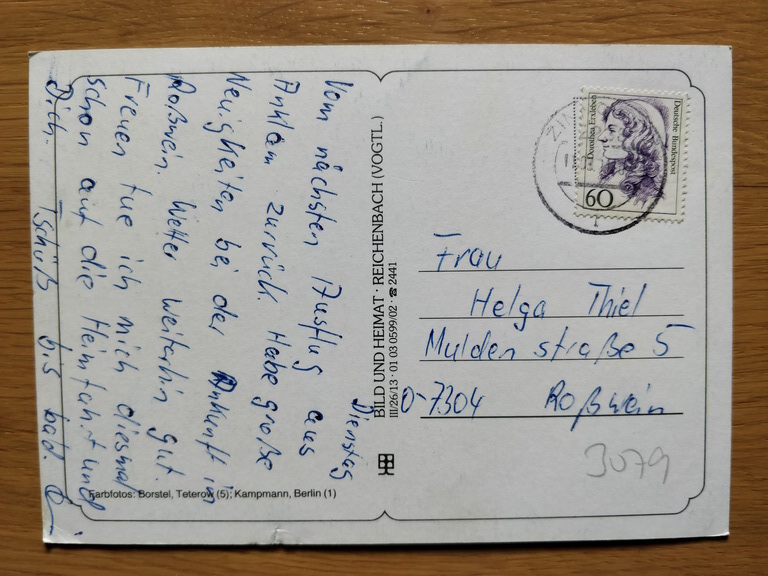 Dienstag
Vom nächsten Ausflug aus
Anklam zurück. Habe große
Neuigkeiten bei der Ankunft in
Roßwein. Wetter weiterhin gut.
Freuen tue ich mich diesmal
schon auf die Heimfahrt und
Dich. Tschüß bis bald.
Farbfotos: Borstel, Teterow (5); Kampmann, Berlin (1)
BILD UND HEIMAT · REICHENBACH (VOGTL.)
III/26/13 · 01 03 0599/02 · ☎ 2441
Deutsche Bundespost
Dorothea Erxleben
60
ZIN
Frau
Helga Thiel
Muldenstraße 5
O-7304 Roßwein
3079